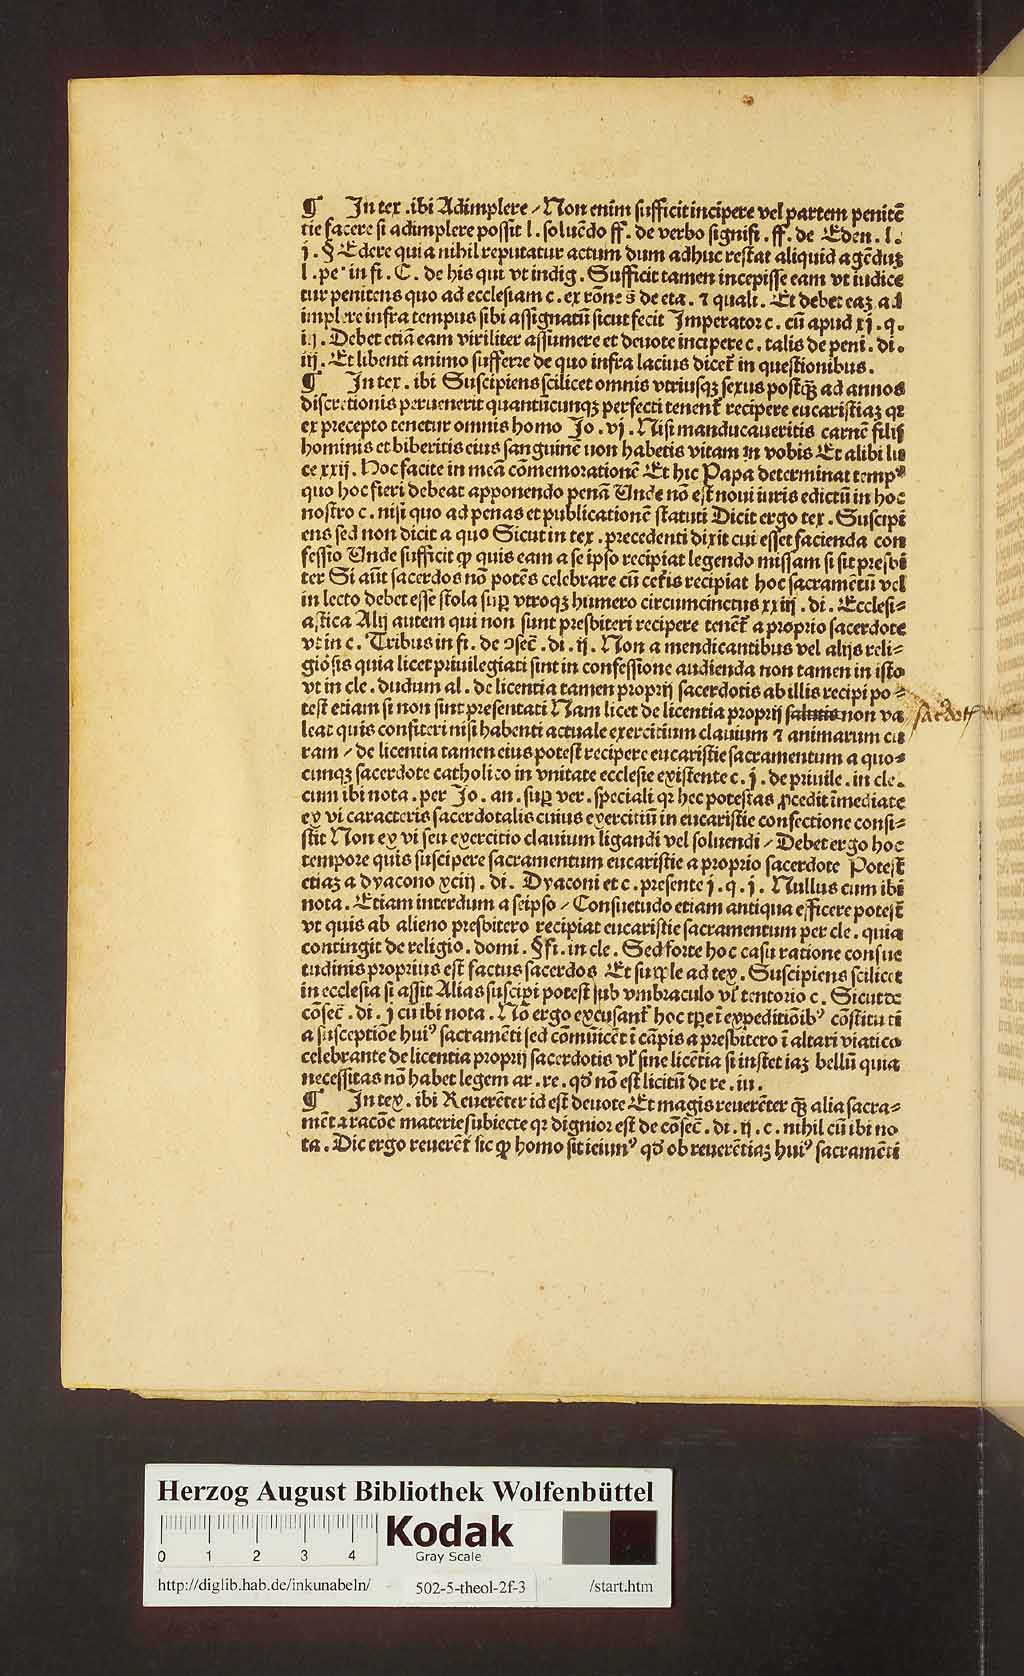 ¶ In tex . ibi Adimplere / Non enim sufficit incipere vel partem penitē
tie facere si adimplere possit l . soluēdo ff . de verbo signifi . ff . de Eden . l .
j . § Edere quia nihil reputatur actum dum adhuc restat aliquid agēduʒ
l . pe' in fi . C . de his qui vt indig . Sufficit tamen incepisse eam vt iudice
tur penitens quo ad ecclesiam c . ex rōne s̄ de eta . ⁊ quali . Et debet eaʒ ad
implere infra tempus sibi assignatū sicut fecit Imperator c . cū apud xj . q .
iij . Debet etiā eam viriliter assumere et deuote incipere c . talis de peni . di .
iij . Et libenti animo sufferre de quo infra lacius dicet᷑ in questionibus .
¶ In tex . ibi Suscipiens scilicet omnis vtriusqʒ sexus postqʒ̄ ad annos
discretionis peruenerit quantūcunqʒ perfecti tenent᷑ recipere eucaristiaʒ qꝛ
ex precepto tenetur omnis homo Jo . vj . Nisi manducaueritis carnē filij
hominis et biberitis eius sanguinē non habetis vitam in vobis Et alibi lu
ce xxij . Hoc facite in meā cōmemorationē Et hic Papa determinat tempꝰ
quo hoc fieri debeat apponendo penā Unde nō est noui iuris edictū in hoc
nostro c . nisi quo ad penas et publicationē statuti Dicit ergo tex . Suscipi
ens sed non dicit a quo Sicut in tex . precedenti dixit cui esset facienda con
fessio Unde sufficit ꝙ quis eam a se ipso recipiat legendo missam si sit presbi
ter Si aūt sacerdos nō potēs celebrare cū cet᷑is recipiat hoc sacramētū vel
in lecto debet esse stola suꝑ vtroqʒ humero circumcinctus xxiij . di . Ecclesi=
astica Alij autem qui non sunt presbiteri recipere tenēt᷑ a proprio sacerdote
vt in c . Tribus in fi . de ↄsec̄ . di . ij . Non a mendicantibus vel alijs reli=
giosis quia licet priuilegiati sint in confessione audienda non tamen in isto
vt in cle . dudum al . de licentia tamen proprij sacerdotis ab illis recipi po=
test etiam si non sint presentati Nam licet de licentia proprij salutis non va sacerdotis
leat quis confiteri nisi habenti actuale exercitium clauium ⁊ animarum cu
ram / de licentia tamen eius potest recipere eucaristie sacramentum a quo=
cunqʒ sacerdote catholico in vnitate ecclesie existente c . j . de priuile . in cle .
cum ibi nota . per Jo . an . suꝑ ver . speciali qꝛ hec potestas ꝓcedit īmediate
ex vi caracteris sacerdotalis cuius exercitiū in eucaristie confectione consi=
stit Non ex vi seu exercitio clauium ligandi vel soluendi / Debet ergo hoc
tempore quis suscipere sacramentum eucaristie a proprio sacerdote Potest
etiaʒ a dyacono xciij . di . Dyaconi et c . presente j . q . j . Nullus cum ibi
nota . Etiam interdum a seipso / Consuetudo etiam antiqua efficere potest
vt quis ab alieno presbitero recipiat eucaristie sacramentum per cle . quia
contingit de religio . domi . § fi . in cle . Sed forte hoc casu ratione consue
tudinis proprius est factus sacerdos Et supple ad tex . Suscipiens scilicet
in ecclesia si assit Alias suscipi potest sub vmbraculo vl̓ tentorio c . Sicut de
cōsec̄ . di . j cū ibi nota . Nō ergo excusant᷑ hoc tꝑe ī expeditiōibꝰ cōstituti
a susceptiōe huiꝰ sacramēti sed cōmūicēt ī cāpis a presbitero ī altari viatico
celebrante de licentia proprij sacerdotis vl̓ sine licētia si instet iaʒ bellū quia
necessitas nō habet legem ar . re . qd̓ nō est licitū de re . iu .
¶ In tex . ibi Reuerēter id est deuote Et magis reuerēter qʒ̄ alia sacra=
mēta racōe materie subiecte qꝛ dignior est de cōsec̄ . di . ij . c . nihil cū ibi no
ta . Dic ergo reuerēt᷑ sic ꝙ homo sit ieiunꝰ qd̓ ob reuerētiaʒ huiꝰ sacramēti
Herzog August Bibliothek Wolfenbüttel
0 1 2 3 4
Kodak
Gray Scale
http://diglib.hab.de/inkunabeln/ 502-5-theol-2f-3 /start.htm